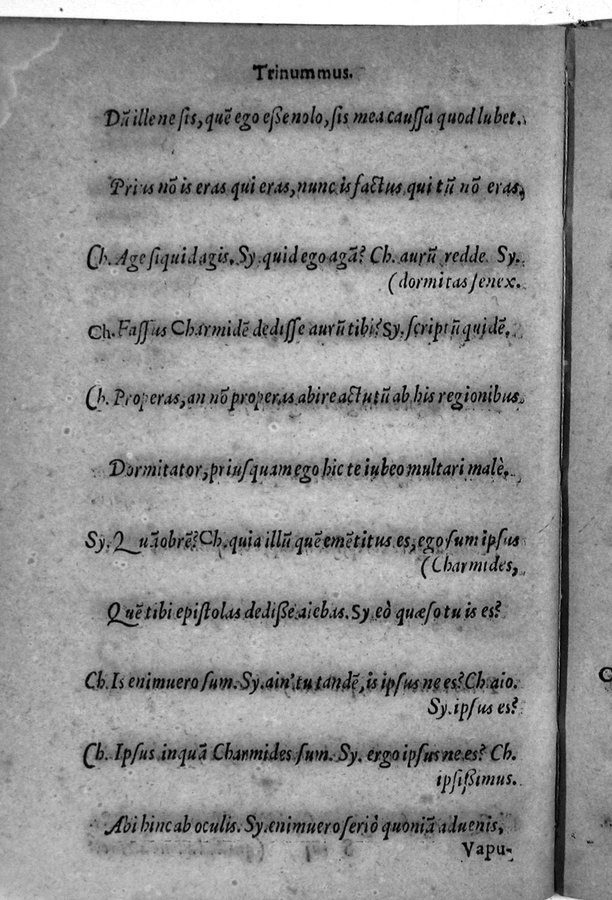 Trinummus.
Dũ ille ne sis, quẽ ego eſſe nolo, ſis mea cauſſa quod lubet.
Prius nõ is eras qui eras, nunc is factus qui tũ nõ eras,
Ch. Age ſi quid agis. Sy. quid ego agã? Ch. aurũ redde. Sy.
(dormitas ſenex.
Ch. Faſſus Charmidẽ dediſſe aurũ tibi? Sy. ſcriptũ quidẽ.
Ch. Properas, an nõ properas abire actutũ ab his regionibus
Dormitator, priuſquam ego hic te iubeo multari malè.
Sy. Quã obrẽ? Ch. quia illũ quẽ emẽtitus es, ego ſum ipſus
(Charmides,
Quẽ tibi epiſtolas dediſſe aiebas. Sy. eò quæſo tu is es?
Ch. Is enimuero ſum. Sy. ain' tu tandẽ, is ipſus ne es? Ch. aio.
Sy. ipſus es?
Ch. Ipſus inquã Charmides ſum. Sy. ergo ipſus ne es? Ch.
ipſiſſimus.
Abi hinc ab oculis. Sy. enimuero ſeriò quoniã aduenis,
Vapu-